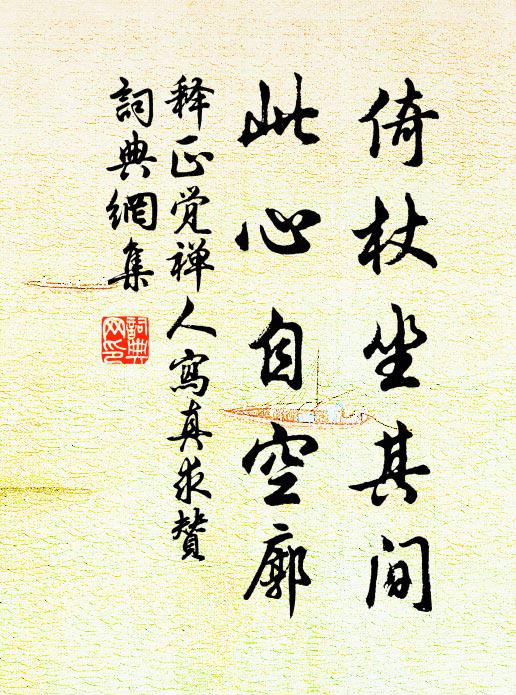 倚杖坐其间
此心自空廓
释正觉禅人寫真求贊
詞典網集
詞典网印